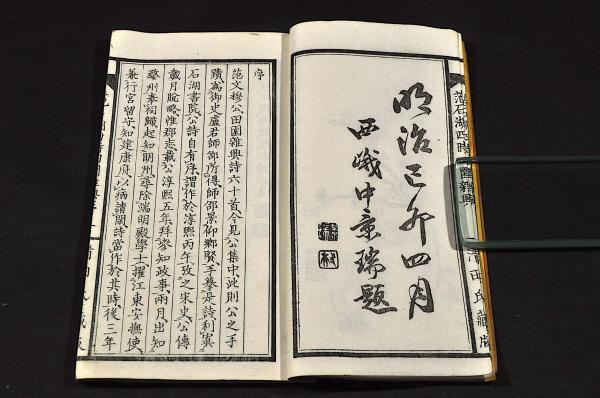 明治己卯四月
西㦃中景瑞題
序
范文穆公田園雜興詩六十首今見公集中此則公之手
蹟為御史盧君師邵所得師邵景仰鄉賢手摹是詩刻寘
石湖書院公詩自有序謂作於淳熙丙午攷之宋史公傳
歲月脫略惟郡志載公淳熙五年拜參知政事兩月出知
婺州奉祠歸起知明州尋除端明殿學士擢江東安撫使
兼行宮留守知建康府以病請閑詩當作於其時後三年